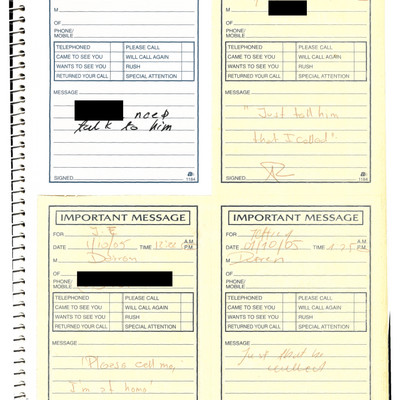 M
OF
PHONE/
MOBILE
TELEPHONED PLEASE CALL
CAME TO SEE YOU WILL CALL AGAIN
WANTS TO SEE YOU RUSH
RETURNED YOUR CALL SPECIAL ATTENTION
MESSAGE
need
talk to him
SIGNED
1184
M
OF
PHONE/
MOBILE
TELEPHONED PLEASE CALL
CAME TO SEE YOU WILL CALL AGAIN
WANTS TO SEE YOU RUSH
RETURNED YOUR CALL SPECIAL ATTENTION
MESSAGE
"Just tell him
that I called"
SIGNED
1184
IMPORTANT MESSAGE
FOR J.E
DATE 1/10/05 TIME A.M. P.M.
M
OF
PHONE/
MOBILE
TELEPHONED PLEASE CALL
CAME TO SEE YOU WILL CALL AGAIN
WANTS TO SEE YOU RUSH
RETURNED YOUR CALL SPECIAL ATTENTION
MESSAGE
"Please call me,
I'm at home"
IMPORTANT MESSAGE
FOR
DATE 01/10/05 TIME A.M. P.M.
M Daren
OF
PHONE/
MOBILE
TELEPHONED PLEASE CALL
CAME TO SEE YOU WILL CALL AGAIN
WANTS TO SEE YOU RUSH
RETURNED YOUR CALL SPECIAL ATTENTION
MESSAGE
Just